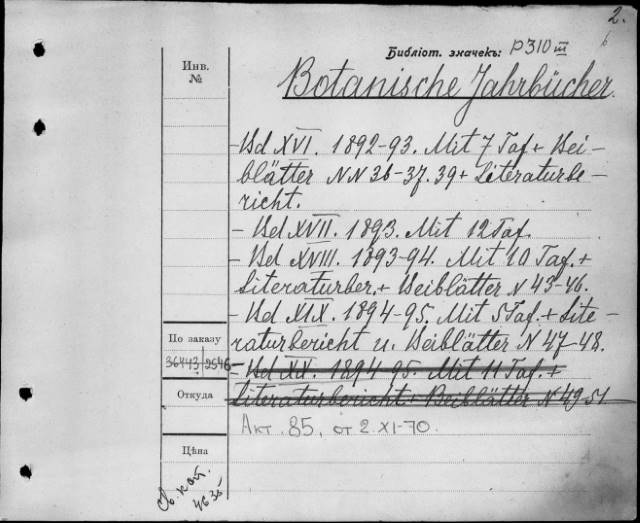 2.
Библіот. значекъ: P310 III
Инв.
№
Botanische Jahrbücher.
- Bd XVI. 1892-93. Mit 7 Taf + Bei-
blätter NN 36-37. 39 + Literaturbe-
richt.
- Bd XVII. 1893. Mit 12 Taf.
- Bd XVIII. 1893-94. Mit 10 Taf. +
Literaturber. + Beiblätter N 43-46.
- Bd XIX. 1894-95. Mit 5 Taf. + Lite-
raturbericht u. Beiblätter N 47-48.
По заказу
36443 2546
- Bd XX. 1894-95. Mit 11 Taf. +
Literaturbericht + Beiblätter N 49-51.
Откуда
Акт. 85, от 2.XI-70.
Цѣна
Св. кат.